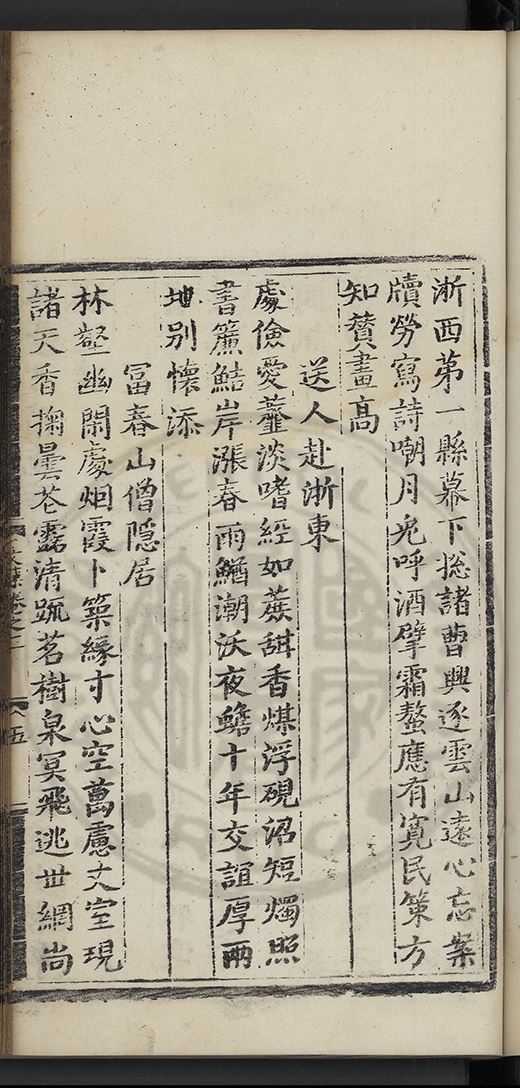 浙西苐一縣幕下揔諸曹興逐雲山遠心忘案
牘勞寫詩嘲月兎呼酒擘霜螯應有寬民策方
知贊畫髙
送人赴浙東
處儉愛虀淡嗜經如蔗甜香煤浮硯沼短燭照
書簾鮚岸漲春雨鰌潮沃夜蟾十年交誼厚兩
地別懷添
冨春山僧隠居
林壑幽閑處烟霞卜築縁寸心空萬慮丈室現
諸天香掬曇花露清疏茗樹泉冥飛逃世網尚